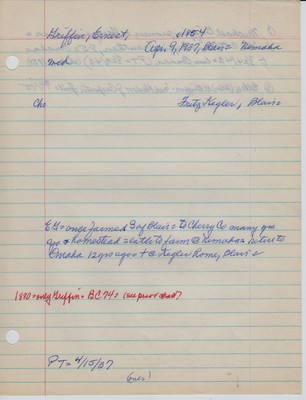 Griffin, Ernest, c1854
Apr. 9, 1937, Blair = Nemaha
wed
Chs Fritz Kegler, Blair =
EG = once farmed So/ Blair = to Cherry Co many yrs
ago & homestead = later to farm @ Nemaha = retire to
Omaha 12 yrs ago = + @ Kegler Home, Blair =
1880 = only Griffin = BC 74 =
PT = 4/15/37
(over)